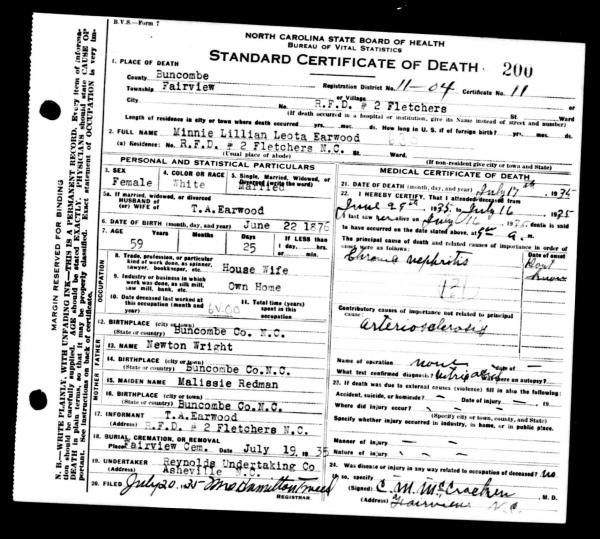 B.V.S.—Form 7
NORTH CAROLINA STATE BOARD OF HEALTH
BUREAU OF VITAL STATISTICS
STANDARD CERTIFICATE OF DEATH 200
1. PLACE OF DEATH
County Buncombe Registration District No. 11-04 Certificate No. 11
Township Fairview or Village
City No. R.F.D. # 2 Fletchers St. Ward
(If death occurred in a hospital or institution, give its Name instead of street and number)
Length of residence in city or town where death occurred yrs. mos. ds. How long in U. S. if of foreign birth? yrs. mos. ds.
2. FULL NAME Minnie Lillian Leota Earwood
(a) Residence: No. R.F.D. # 2 Fletchers N.C. St. Ward.
(Usual place of abode) (If non-resident give city or town and State)
PERSONAL AND STATISTICAL PARTICULARS
3. SEX Female
4. COLOR OR RACE White
5. Single, Married, Widowed, or Divorced (write the word) Married
5a. If married, widowed, or divorced
HUSBAND of
(or) WIFE of T.A.Earwood
6. DATE OF BIRTH (month, day, and year) June 22 1876
7. AGE Years 59 Months Days 25 If LESS than 1 day, hrs. or min.
OCCUPATION
8. Trade, profession, or particular kind of work done, as spinner, sawyer, bookkeeper, etc. House Wife
9. Industry or business in which work was done, as silk mill, saw mill, bank, etc. Own Home
10. Date deceased last worked at this occupation (month and year)
11. Total time (years) spent in this occupation
12. BIRTHPLACE (city or town)
(State or country) Buncombe Co. N.C.
FATHER
13. NAME Newton Wright
14. BIRTHPLACE (city or town)
(State or country) Buncombe Co.N.C.
MOTHER
15. MAIDEN NAME Malissie Redman
16. BIRTHPLACE (city or town)
(State or country) Buncombe Co.N.C.
17. INFORMANT T.A.Earwood
(Address) R.F.D. # 2 Fletchers N.C.
18. BURIAL, CREMATION, OR REMOVAL
Place Fairview Cem. Date July 19 1935
19. UNDERTAKER Reynolds Undertaking Co
(Address) Asheville N.C.
20. FILED July 20, 1935
REGISTRAR.
MEDICAL CERTIFICATE OF DEATH
21. DATE OF DEATH (month, day, and year) July 17th 1935
22. I HEREBY CERTIFY, That I attended deceased from
June 25th 1935, to July 16 1935
I last saw her alive on July 16 1935, death is said
to have occurred on the date stated above, at a.m.
The principal cause of death and related causes of importance in order of onset were as follows: Date of onset
Chronic nephritis Don't know
Contributory causes of importance not related to principal cause:
arteriosclerosis
Name of operation none date of —
What test confirmed diagnosis? Was there an autopsy?
23. If death was due to external causes (violence) fill in also the following:
Accident, suicide, or homicide? — Date of injury 19
Where did injury occur? — —
(Specify city or town, county, and State)
Specify whether injury occurred in industry, in home, or in public place.
Manner of injury — —
Nature of injury — —
24. Was disease or injury in any way related to occupation of deceased? no
If so, specify
(Signed) C. M. McCracken, M. D.
(Address) Fairview N.C.
MARGIN RESERVED FOR BINDING
N. B.—WRITE PLAINLY, WITH UNFADING INK—THIS IS A PERMANENT RECORD. Every item of information should be carefully supplied. AGE should be stated EXACTLY. PHYSICIANS should state CAUSE OF DEATH in plain terms, so that it may be properly classified. Exact statement of OCCUPATION is very important. See instructions on back of certificate.